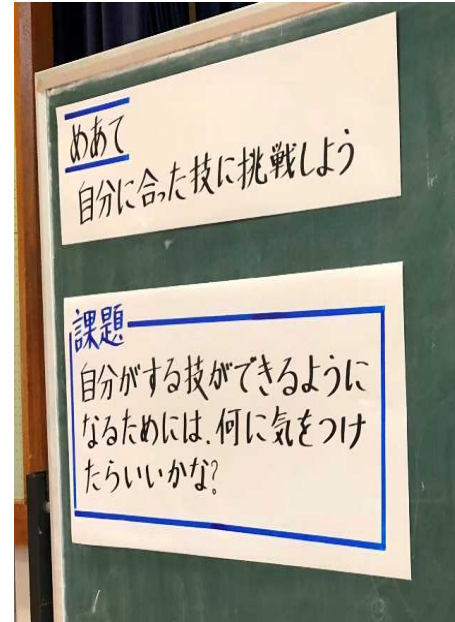 めあて
自分に合った技に挑戦しよう
課題
自分がする技ができるように
なるためには、何に気をつけ
たらいいかな?